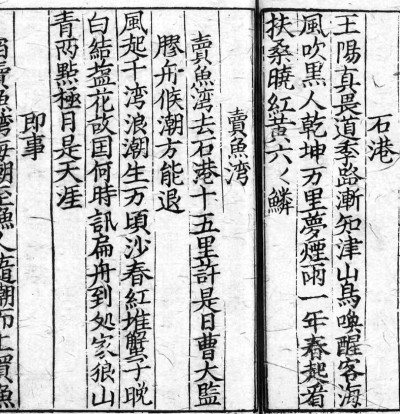 石港
王陽真畏道季路漸知津山鳥喚醒客海
風吹黑人乾坤万里夢煙雨一年春起看
扶桑曉紅黃六〻鱗
賣魚湾
賣魚湾去石港十五里許是日曹大監
膠舟候潮方能退
風起千湾浪潮生万頃沙春紅堆蟹子晚
白結塩花故国何時訊扁舟到処家狼山
青両點極目是天涯
即事
賣魚湾海潮至漁人隨潮而上買魚